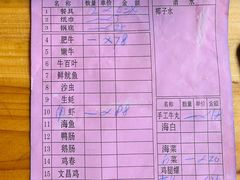 名称 数量 单价 金额
1 餐具
2 纸巾
3 锅底
4 肥牛 一 x78
5 嫩牛
6 牛百叶
7 鲜鱿鱼
8 沙虫
9 生蚝
10 虾 一 x88
11 海鱼
12 鸭肠
13 鹅肠
14 鸡春
15 文昌鸡
椰子水
名称 数量 单价 金额
手工牛丸
海白
海菜
菜 一 x20
鸡腿螺